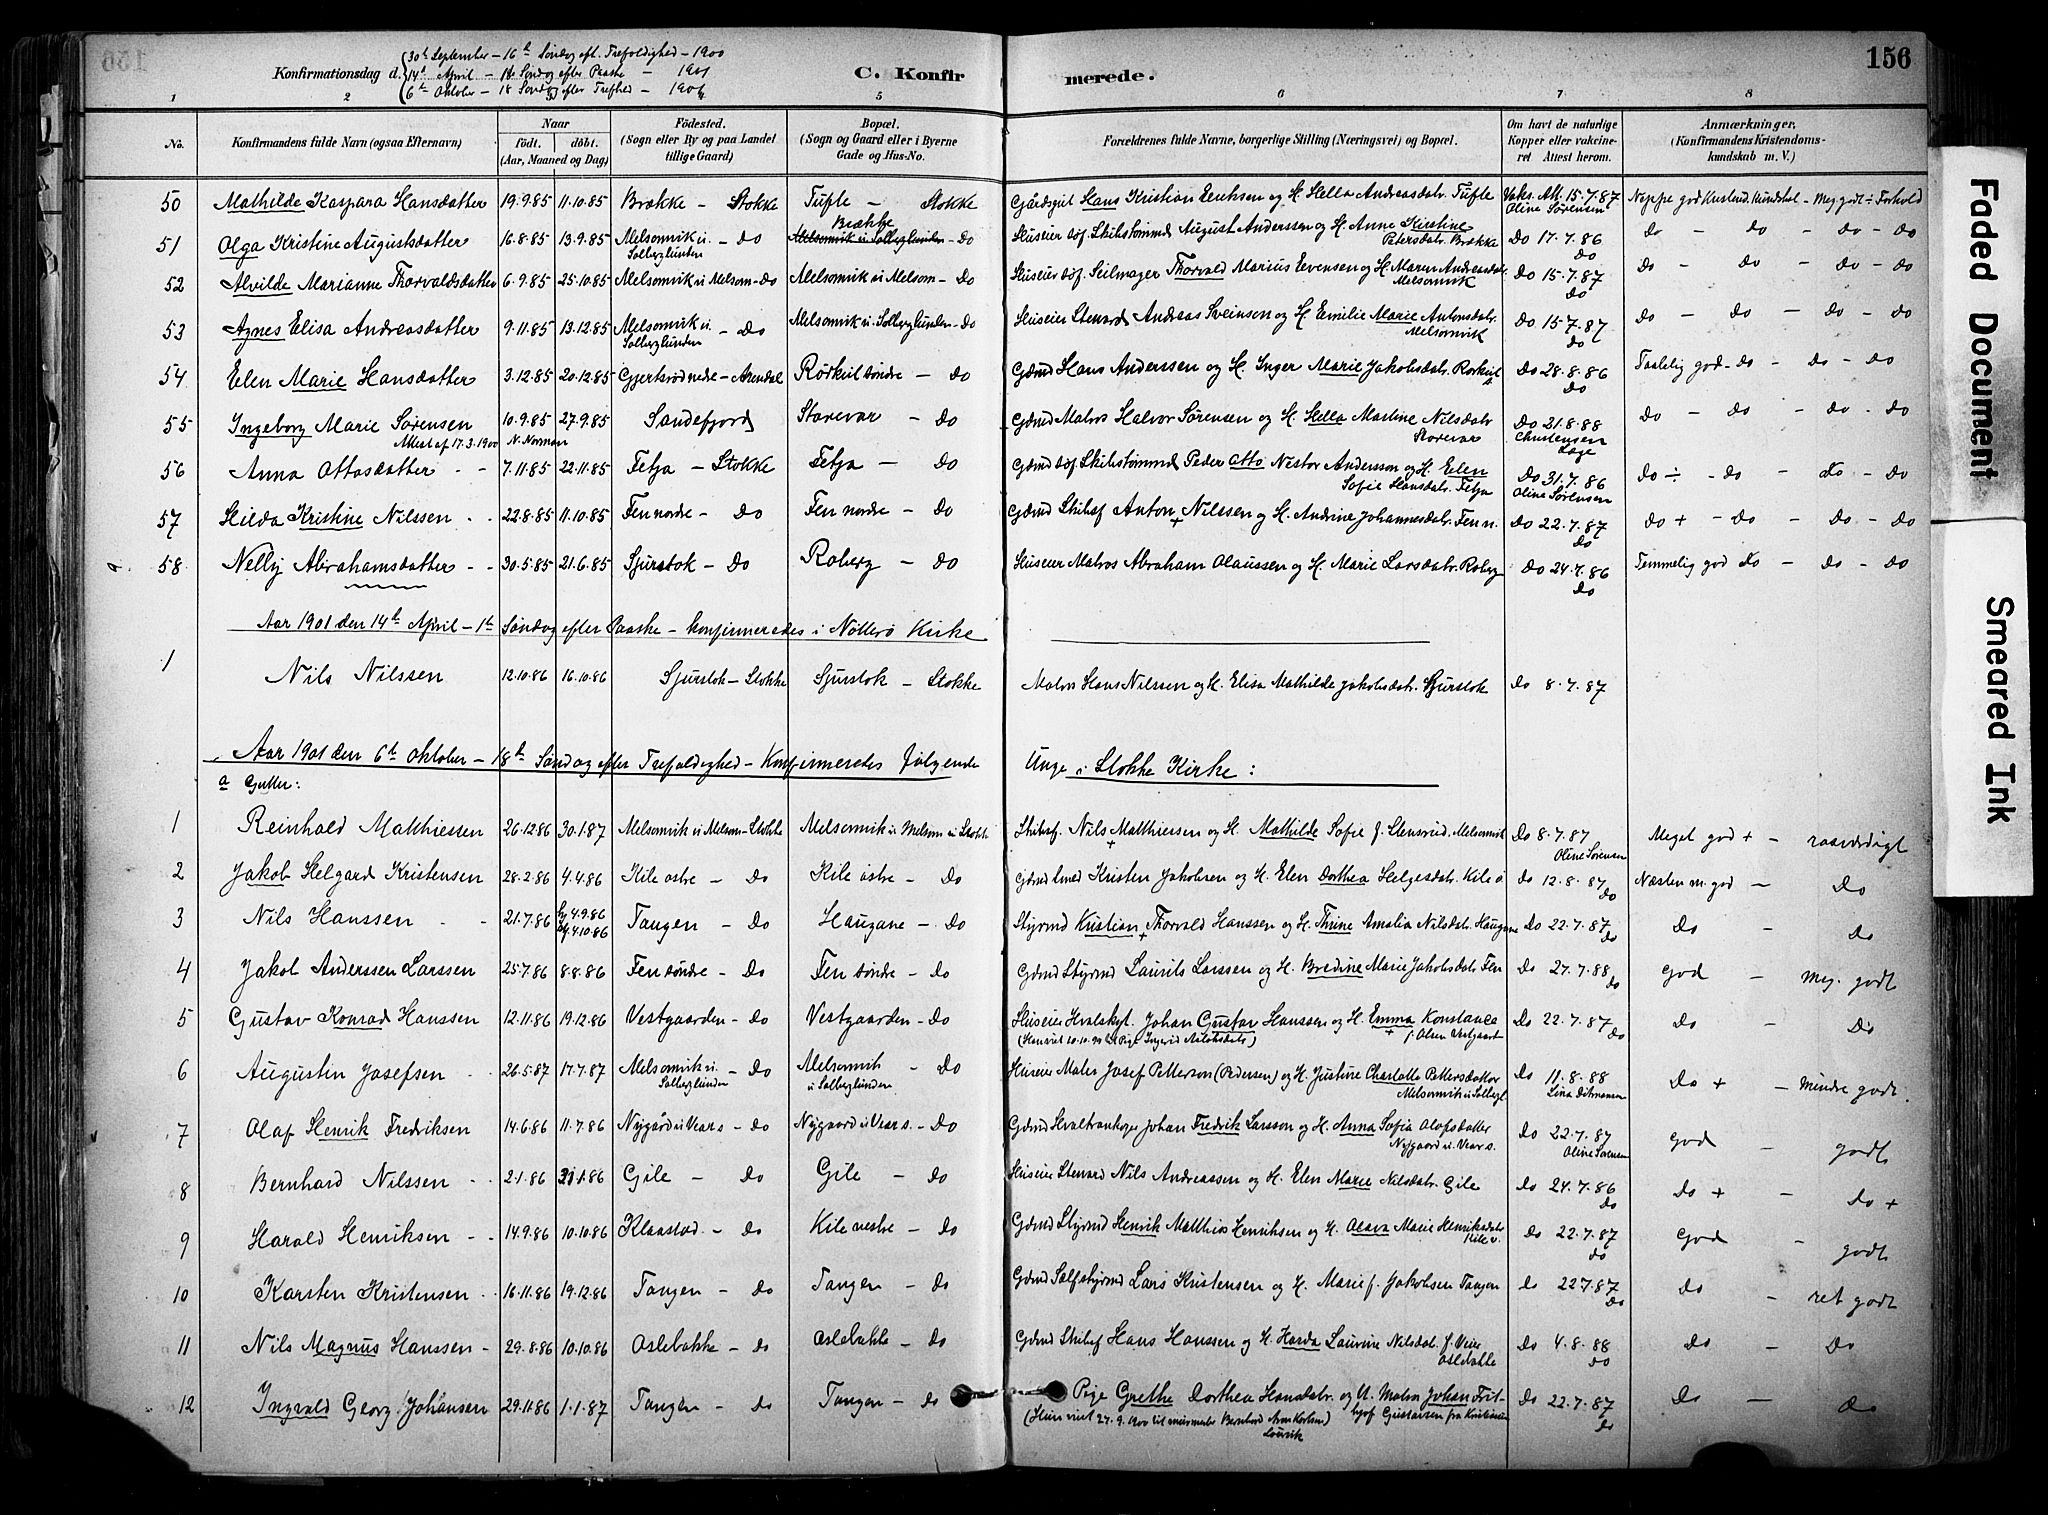 156
Konfirmationsdag d. 30te September – 16de Søndag eft. Trefoldighed – 1900
14de April – 1ste Søndag efter Paaske – 1901
6te Oktober – 18 Søndag efter Trefhed – 1901
C. Konfirmerede.
1 2 3 4 5 6 7 8
No. Konfirmandens fulde Navn (ogsaa Efternavn) Naar født. døbt. (Aar, Maaned og Dag) Fødested. (Sogn eller By og paa Landet tillige Gaard) Bopæl. (Sogn og Gaard eller i Byerne Gade og Hus-No. Forældrenes fulde Navne, borgerlige Stilling (Næringsvei) og Bopæl. Om havt de naturlige Kopper eller vakcineret Attest herom. Anmærkninger. (Konfirmandens Kristendomskundskab m. V.)
50 Mathilde Kaspara Hansdatter 19.9.85 11.10.85 Brække – Stokke Tufte – Stokke Hans Kristian Eriksen og H. Hella Andreasdatr. Tufte Vaks. Att. 15.7.87 Oline Sørensen
51 Olga Kristine Augustsdatter 16.8.85 13.9.85 Melsomvik u. Solberglunden – Do Brække Melsomvik u. Solberglunden – Do Huseier August Anderssen og H. Anne Kirstine Petersdatr. Brække Do 17.7.86 Do Do – Do – Do – Do
52 Alvilde Marianne Thorvaldsdatter 6.9.85 25.10.85 Melsomvik u. Melsom – Do Melsomvik u. Melsom – Do Huseier Seilmager Thorvald Marius Evensen og H. Maren Andreasdatr. Melsomvik Do 15.7.87 Do Do – Do – Do – Do
53 Agnes Elisa Andreasdatter 9.11.85 13.12.85 Melsomvik u. Solberglunden – Do Melsomvik u. Solberglunden – Do Huseier Steward Andreas Sveinsen og H. Emilie Marie Antonsdatr. Melsomvik Do 15.7.87 Do Do – Do – Do – Do
54 Elen Marie Hansdatter 3.12.85 20.12.85 Rørkul søndre – Do Gdmd Hans Anderssen og H. Inger Marie Jakobsdatr. Do 28.8.86 Do Taalelig god – Do – Do – Do
55 Ingeborg Marie Sørensen Attest af 17.3.1900 10.9.85 27.9.85 N. Norman Sandefjord Storevar – Do Gdmd Matros Halvor Sørensen og H. Hella Martine Nilsdatr Storevar Do 21.8.88 Christensen Læge Do – Do – Do – Do
56 Anna Ottosdatter 7.11.85 22.11.85 Fetja – Stokke Fetja – Do Gdmd Peder Otto Nestor Andersson og H. Elen Sofie Hansdatr. Fetja Do 31.7.86 Oline Sørensen Do ÷ – Do – Do – Do
57 Hilda Kristine Nilssen 22.8.85 11.10.85 Fen nordre – Do Fen nordre – Do Gdmd Skibsf Anton Nilssen og H. Andrine Johannesdatr. Fen n. Do 22.7.87 Do Do + – Do – Do – Do
58 Nelly Abrahamsdatter 30.5.85 21.6.85 Sjurstok – Do Roberg – Do Huseier Matros Abraham Olaussen og H. Marie Larsdatr. Roberg Do 24.7.86 Do Temmelig god Do – Do – Do
Aar 1901 den 14de April – 1ste Søndag efter Paaske – konfirmeredes i Nøtterø Kirke
1 Nils Nilssen 12.10.86 16.10.86 Sjurstok – Stokke Sjurstok – Stokke Matros Hans Nilssen og H. Elisa Mathilde Jakobsdatr. Sjurstok Do 8.7.87
Aar 1901 den 6te Oktober – 18de Søndag efter Trefoldighed – Konfirmeredes følgende Unge i Stokke Kirke:
a Gutter:
1 Reinhold Matthiessen 26.12.86 30.1.87 Melsomvik u. Melsom – Stokke Melsomvik u. Melsom i Stokke Skibsf. Nils Matthiessen og H. Mathilde Sofie f. Stensrud. Melsomvik Do 8.7.87 Oline Sørensen Meget god + – rosværdigt
2 Jakob Helgard Kristensen 28.2.86 4.4.86 Kile østre – Do Kile østre – Do Kristen Jakobsen og H. Elen Dorthea Helgesdatr. Kile ø Do 12.8.87 Do Næsten m. god – Do
3 Nils Hanssen 21.7.86 4.9.86 4.10.86 Tangen – Do Haugane – Do Styrmd Kristian Thorvald Hanssen og H. Thrine Amalia Nilsdatr. Haugane Do 22.7.87 Do Do – Do
4 Jakob Anderssen Larssen 25.7.86 8.8.86 Fen søndre – Do Fen søndre – Do Gdmd Styrmd Laurits Larssen og H. Bredine Marie Jakobsdatr. Fen Do 27.7.88 Do God – Meg. godt
5 Gustav Konrad Hanssen 12.11.86 19.12.86 Vestgaarden – Do Vestgaarden – Do Huseier Hvalskyt. Johan Gustav Hanssen og H. Emma Konstance f. Olsen Vestgaard Do 22.7.87 Do Do – Do
6 Augustin Josefsen 26.5.87 17.7.87 Melsomvik u. Solberglunden – Do Melsomvik u. Solberglunden – Do Huseier Maler Josef Petterson (Pedersen) og H. Justine Charlotte Pettersdatter Melsomvik u. Solbergl Do 11.8.88 Lina Ditmansen Do + – mindre godt.
7 Olaf Henrik Fredriksen 14.6.86 11.7.86 Nygård u. Vear s. – Do Nygaard u. Vear s. – Do Gdmd Johan Fredrik Larsson og H. Anna Sofia Olofsdatter Nygaard u. Vear s. Do 22.7.87 Oline Sørensen God godt
8 Bernhard Nilssen 2.1.86 31.1.86 Gile – Do Gile – Do Huseier Steward Nils Andreassen og H. Elen Marie Nilsdatr. Gile Do 24.7.86 Do Do + – Do +
9 Harald Henriksen 14.9.86 10.10.86 Klaastad – Do Kile vestre – Do Gdmd Styrmd Henrik Matthias Henriksen og H. Olava Marie Henriksdatr Kile v. Do 22.7.87 Do God – godt
10 Karsten Kristensen 16.11.86 19.12.86 Tangen – Do Tangen – Do Gdmd Lars Kristensen og H. Marie f. Jakobsen Tangen Do 22.7.87 Do Do – ret godt
11 Nils Magnus Hanssen 29.8.86 10.10.86 Oslebakke – Do Oslebakke – Do Gdmd Skibsf Hans Hanssen og H. Harda Laurine Nilsdat. f. Veie Oslebakke Do 4.8.88 Do Do – Do
12 Ingvald Georg Johansen 29.11.86 1.1.87 Tangen – Do Tangen – Do Pige Grethe Dorthea Hansdatr. og U. Matros Johan Fritjof Gustavsen fra Kristiania Do 22.7.87 Do Do – Do
Faded Document
Smeared Ink